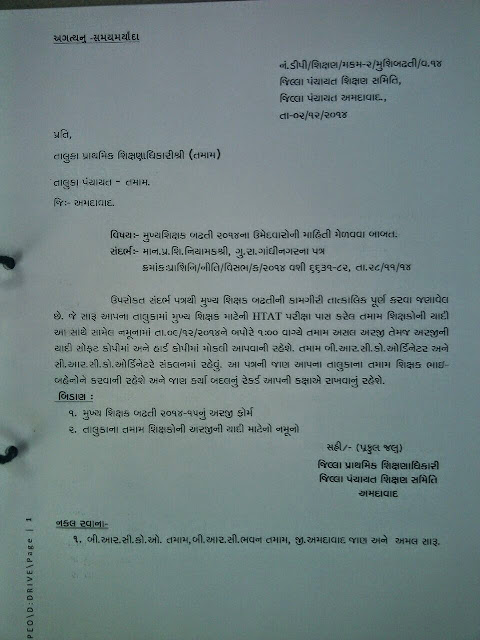 અગત્યનુ -સમયમર્યાદા
નં.ડીપી/શિક્ષણ/મકમ-૨/મુશિબઢતી/વ.૧૪
જિલ્લા પંચાયત શિક્ષણ સમિતિ,
જિલ્લા પંચાયત અમદાવાદ.,
તા-૦૨/૧૨/૨૦૧૪
પ્રતિ,
તાલુકા પ્રાથમિક શિક્ષણાધિકારીશ્રી (તમામ)
તાલુકા પંચાયત - તમામ.
જિઃ- અમદાવાદ.
વિષયઃ- મુખ્યશિક્ષક બઢતી ૨૦૧૪ના ઉમેદવારોની માહિતી મેળવવા બાબત.
સંદર્ભઃ- માન.પ્ર.શિ.નિયામકશ્રી, ગુ.રા.ગાંધીનગરના પત્ર
ક્રમાંકઃપ્રાશિનિ/નીતિ/વિસભ/ક/૨૦૧૪ વશી ૬૬૩૧-૮૨, તા.૨૮/૧૧/૧૪
ઉપરોકત સંદર્ભ પત્રથી મુખ્ય શિક્ષક બઢતીની કામગીરી તાત્કાલિક પૂર્ણ કરવા જણાવેલ
છે. જે સારૂ આપના તાલુકામાં મુખ્ય શિક્ષક માટેની HTAT પરીક્ષા પાસ કરેલ તમામ શિક્ષકોની યાદી
આ સાથે સામેલ નમૂનામાં તા.૦૮/૧૨/૨૦૧૪ને બપોરે ૧:૦૦ વાગ્યે તમામ અસલ અરજી તેમજ અરજીની
યાદી સોફટ કોપીમાં અને હાર્ડ કોપીમાં મોકલી આપવાની રહેશે. તમામ બી.આર.સી.કો.ઓર્ડિનેટર અને
સી.આર.સી.કો.ઓર્ડિનેટરે સંકલનમાં રહેવું. આ પત્રની જાણ આપના તાલુકાના તમામ શિક્ષક ભાઇ-
બહેનોને કરવાની રહેશે અને જાણ કર્યા બદલનું રેકર્ડ આપની કક્ષાએ રાખવાનું રહેશે.
બિડાણ :
૧. મુખ્ય શિક્ષક બઢતી ૨૦૧૪-૧૫નું અરજી ફોર્મ
૨. તાલુકાના તમામ શિક્ષકોની અરજીની યાદી માટેનો નમૂનો
સહી/- (પ્રફુલ જલુ)
જિલ્લા પ્રાથમિક શિક્ષણાધિકારી
જિલ્લા પંચાયત શિક્ષણ સમિતિ
અમદાવાદ
નકલ રવાના-
૧. બી.આર.સી.કો.ઓ. તમામ,બી.આર.સી.ભવન તમામ, જી.અમદાવાદ જાણ અને અમલ સારૂ.
PEO\D:DRIVE\Page | 1